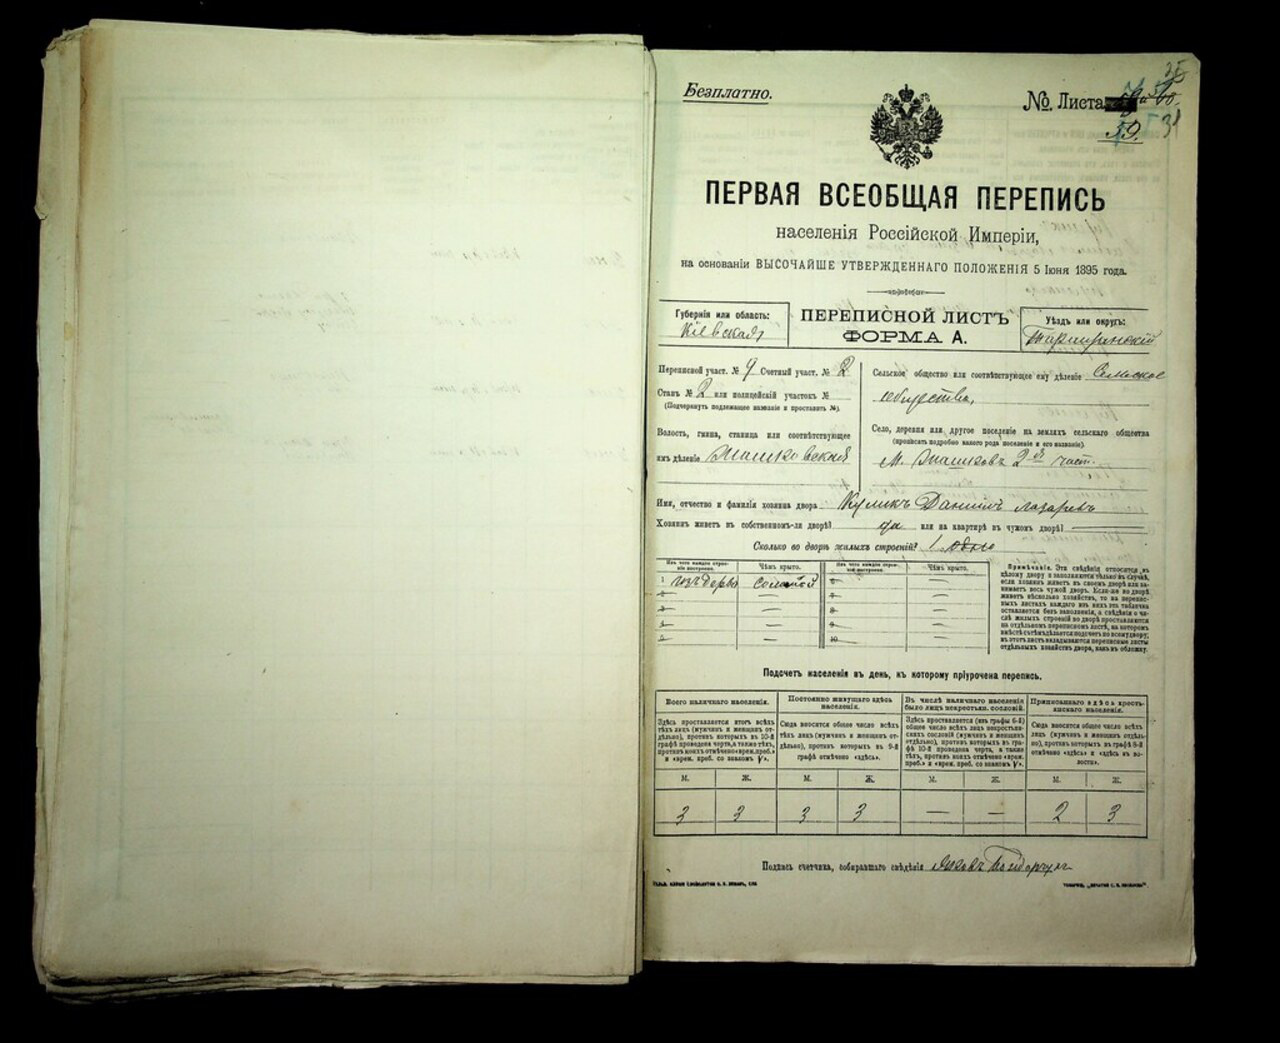 Безплатно.
№ Листа
59.
31
ПЕРВАЯ ВСЕОБЩАЯ ПЕРЕПИСЬ
населенія Россійской Имперіи,
на основаніи ВЫСОЧАЙШЕ УТВЕРЖДЕННАГО ПОЛОЖЕНІЯ 5 Іюня 1895 года.
Губернія или область:
Кіевская
ПЕРЕПИСНОЙ ЛИСТЪ
ФОРМА А.
Уѣздъ или округъ:
Переписной участ. № 9 Счетный участ. № 2
Станъ № 2 или полицейскій участокъ №
(Подчеркнуть подлежащее названіе и проставить №).
Волость, гмина, станица или соотвѣтствующее
имъ дѣленіе
Сельское общество или соотвѣтствующее ему дѣленіе Сельское
общество,
Село, деревня или другое поселеніе на земляхъ сельскаго общества
(прописать подробно какого рода поселеніе и его названіе).
2й част.
Имя, отчество и фамилія хозяина двора Куликъ Даніилъ Лазаревъ
Хозяинъ живетъ въ собственномъ-ли дворѣ? да или на квартирѣ въ чужомъ дворѣ?
Сколько во дворѣ жилыхъ строеній? 1. одно
Изъ чего каждое строеніе построено.
Чѣмъ крыто.
Изъ чего каждое строеніе построено.
Чѣмъ крыто.
1 изъ дерева соломой 6
2 7
3 8
4 9
5 10
Примѣчаніе. Эти свѣдѣнія относятся къ
цѣлому двору и заполняются только въ случаѣ,
если хозяинъ живетъ въ своемъ дворѣ или занимаетъ
весь чужой дворъ. Если-же во дворѣ
живетъ нѣсколько хозяйствъ, то на переписныхъ
листахъ каждаго изъ нихъ эта табличка
оставляется безъ заполненія, а свѣдѣнія о числѣ
жилыхъ строеній во дворѣ проставляются
на отдѣльномъ переписномъ листѣ, на которомъ
вмѣстѣ съ тѣмъ дѣлается подсчетъ по всему двору;
въ этотъ листъ вкладываются переписные листы
отдѣльныхъ хозяйствъ двора, какъ въ обложку.
Подсчетъ населенія въ день, къ которому пріурочена перепись.
Всего наличнаго населенія.
Здѣсь проставляется итогъ всѣхъ
тѣхъ лицъ (мужчинъ и женщинъ отдѣльно),
противъ которыхъ въ 10-й
графѣ проведена черта, а также тѣхъ,
противъ коихъ отмѣчено «врем. преб.»
и «врем. преб. со знакомъ V».
Постоянно живущаго здѣсь
населенія.
Сюда вносится общее число всѣхъ
тѣхъ лицъ (мужчинъ и женщинъ отдѣльно),
противъ которыхъ въ 9-й
графѣ отмѣчено «здѣсь».
Въ числѣ наличнаго населенія
было лицъ некрестьян. сословій.
Здѣсь проставляется (изъ графы 6-й)
общее число всѣхъ лицъ некрестьянскихъ
сословій (мужчинъ и женщинъ
отдѣльно), противъ которыхъ въ графѣ
10-й проведена черта, а также
тѣхъ, противъ коихъ отмѣчено «врем.
преб.» и «врем. преб. со знакомъ V».
Приписаннаго здѣсь крестьянскаго
населенія.
Сюда вносится общее число всѣхъ
лицъ (мужчинъ и женщинъ отдѣльно),
противъ которыхъ въ графѣ 8-й
отмѣчено «здѣсь» и «здѣсь въ волости».
М. Ж. М. Ж. М. Ж. М. Ж.
3 3 3 3 — — 2 3
Подпись счетчика, собиравшаго свѣдѣнія